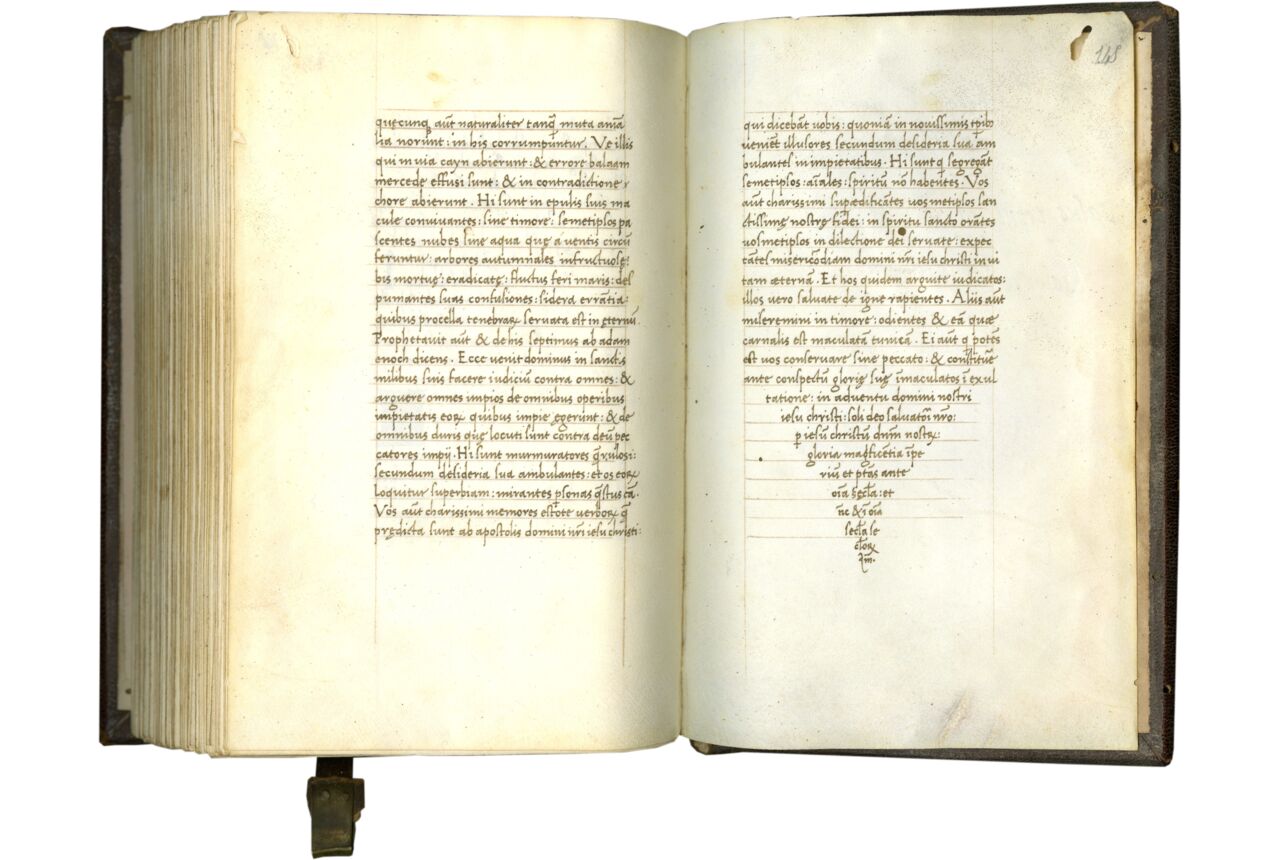 quęcunq aūt naturaliter tanq̄ muta anīa
lia norunt: in his corrumpūntur. Ve illis
qui in via cayn abierunt: & errore balaam
mercede effusi sunt: & in contradictione
chore abierunt. Hi sunt in epulis suis ma
cule convivantes: sine timore: semetipsos pa
scentes nubes sine aqua quę a ventis circū
feruntur: arbores autumnales infructuosę:
bis mortuę: eradicatę: fluctus feri maris: des
pumantes suas confusiones: sidera errātia:
quibus procella tenebraꝝ servata est in ęternū.
Prophetavit aūt & de his septimus ab adam
enoch dicens. Ecce venit dominus in sanctis
milibus suis facere iudiciū contra omnes: &
arguere omnes impios de omnibus operibus
impietatis eoꝝ quibus impie egerunt: & de
omnibus duris quę locuti sunt contra deū pec
catores impij. Hi sunt murmuratores q̄rulosi:
secundum desideria sua ambulantes: et os eoꝝ
loquitur superbiam: mirantes psonas q̄stus cā.
Vos aūt charissimi memores estote verboꝝ q̄
prędicta sunt ab apostolis domini nr̄i iesu christi:
148
qui dicebāt vobis: quoniā in novissimis tpib
venieēt illusores secundum desideria sua am
bulantes in impietatibus. Hi sunt q segregāt
semetipsos: aīales: spiritū nō habentes. Vos
aūt charissimi supædificātes vos metipsos san
ctissimę nostrę fidei: in spiritu sancto orātes
vosmetipsos in dilectione dei servate: expec
tātes misericōdiam domini nr̄i iesu christi in vi
tam æternā. Et hos quidem arguite iudicatos:
illos vero salvate de igne rapientes. Aliis aūt
miseremini in timore: odientes & eā quæ
carnalis est maculatā tunicā. Ei aut q potēs
est vos conservare sine peccato: & constituē
ante conspectū glorię suę īmaculatos ī exul
tatione: in adventu domini nostri
iesu christi: soli deo salvatoī nr̄o:
p iesū christū dnm̄ nostꝝ:
gloria magficētia īpe
riū et ptās ante
oīa sęcla: et
nc & ī oīa
secla se
cloꝝ
Am̄.